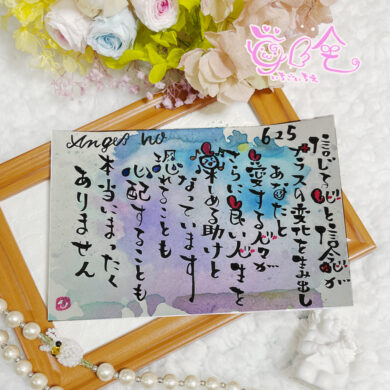 Angel no 625
信じる心と信念が
プラスの変化を生み出し
あなたと
愛する人々が
さらに良い人生を
楽しめる助けと
なっています
恐れることも
心配することも
本当にまったく
ありません